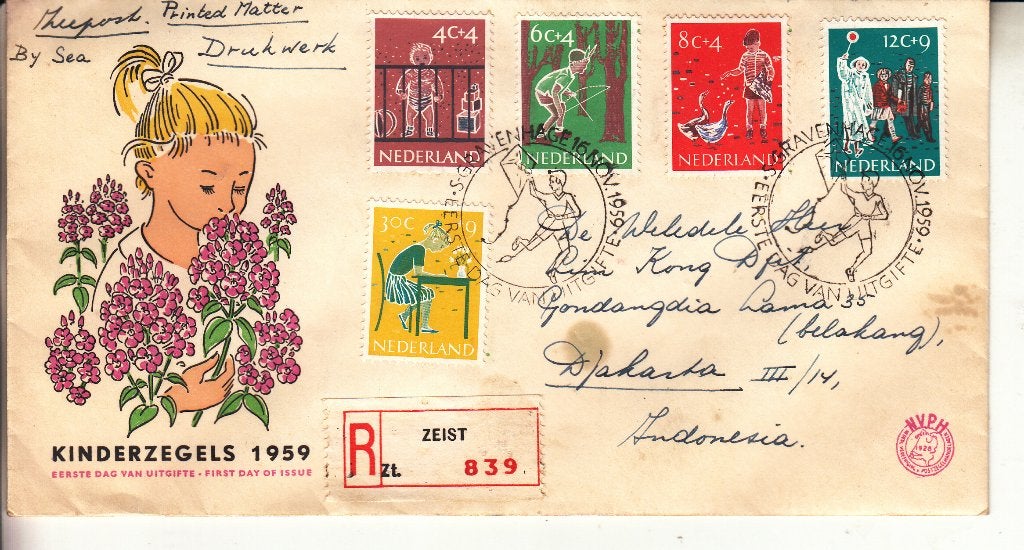 Zeepost. Printed Matter
By Sea
Drukwerk
4C+4
NEDERLAND
6C+4
NEDERLAND
8C+4
NEDERLAND
12C+9
NEDERLAND
30C 9
NEDERLAND
'S-GRAVENHAGE 16.NOV.1959
EERSTE DAG VAN UITGIFTE
'S-GRAVENHAGE 16.NOV.1959
EERSTE DAG VAN UITGIFTE
De Weledele Heer
Lim Kong Djit,
Gondangdia Lama 35
(belakang),
Djakarta III/14,
Indonesia.
KINDERZEGELS 1959
EERSTE DAG VAN UITGIFTE · FIRST DAY OF ISSUE
R
ZEIST
Zt. 839
NVPH
1928